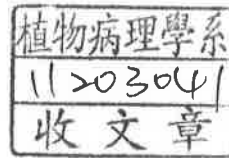 植物病理學系
11203041
收文章